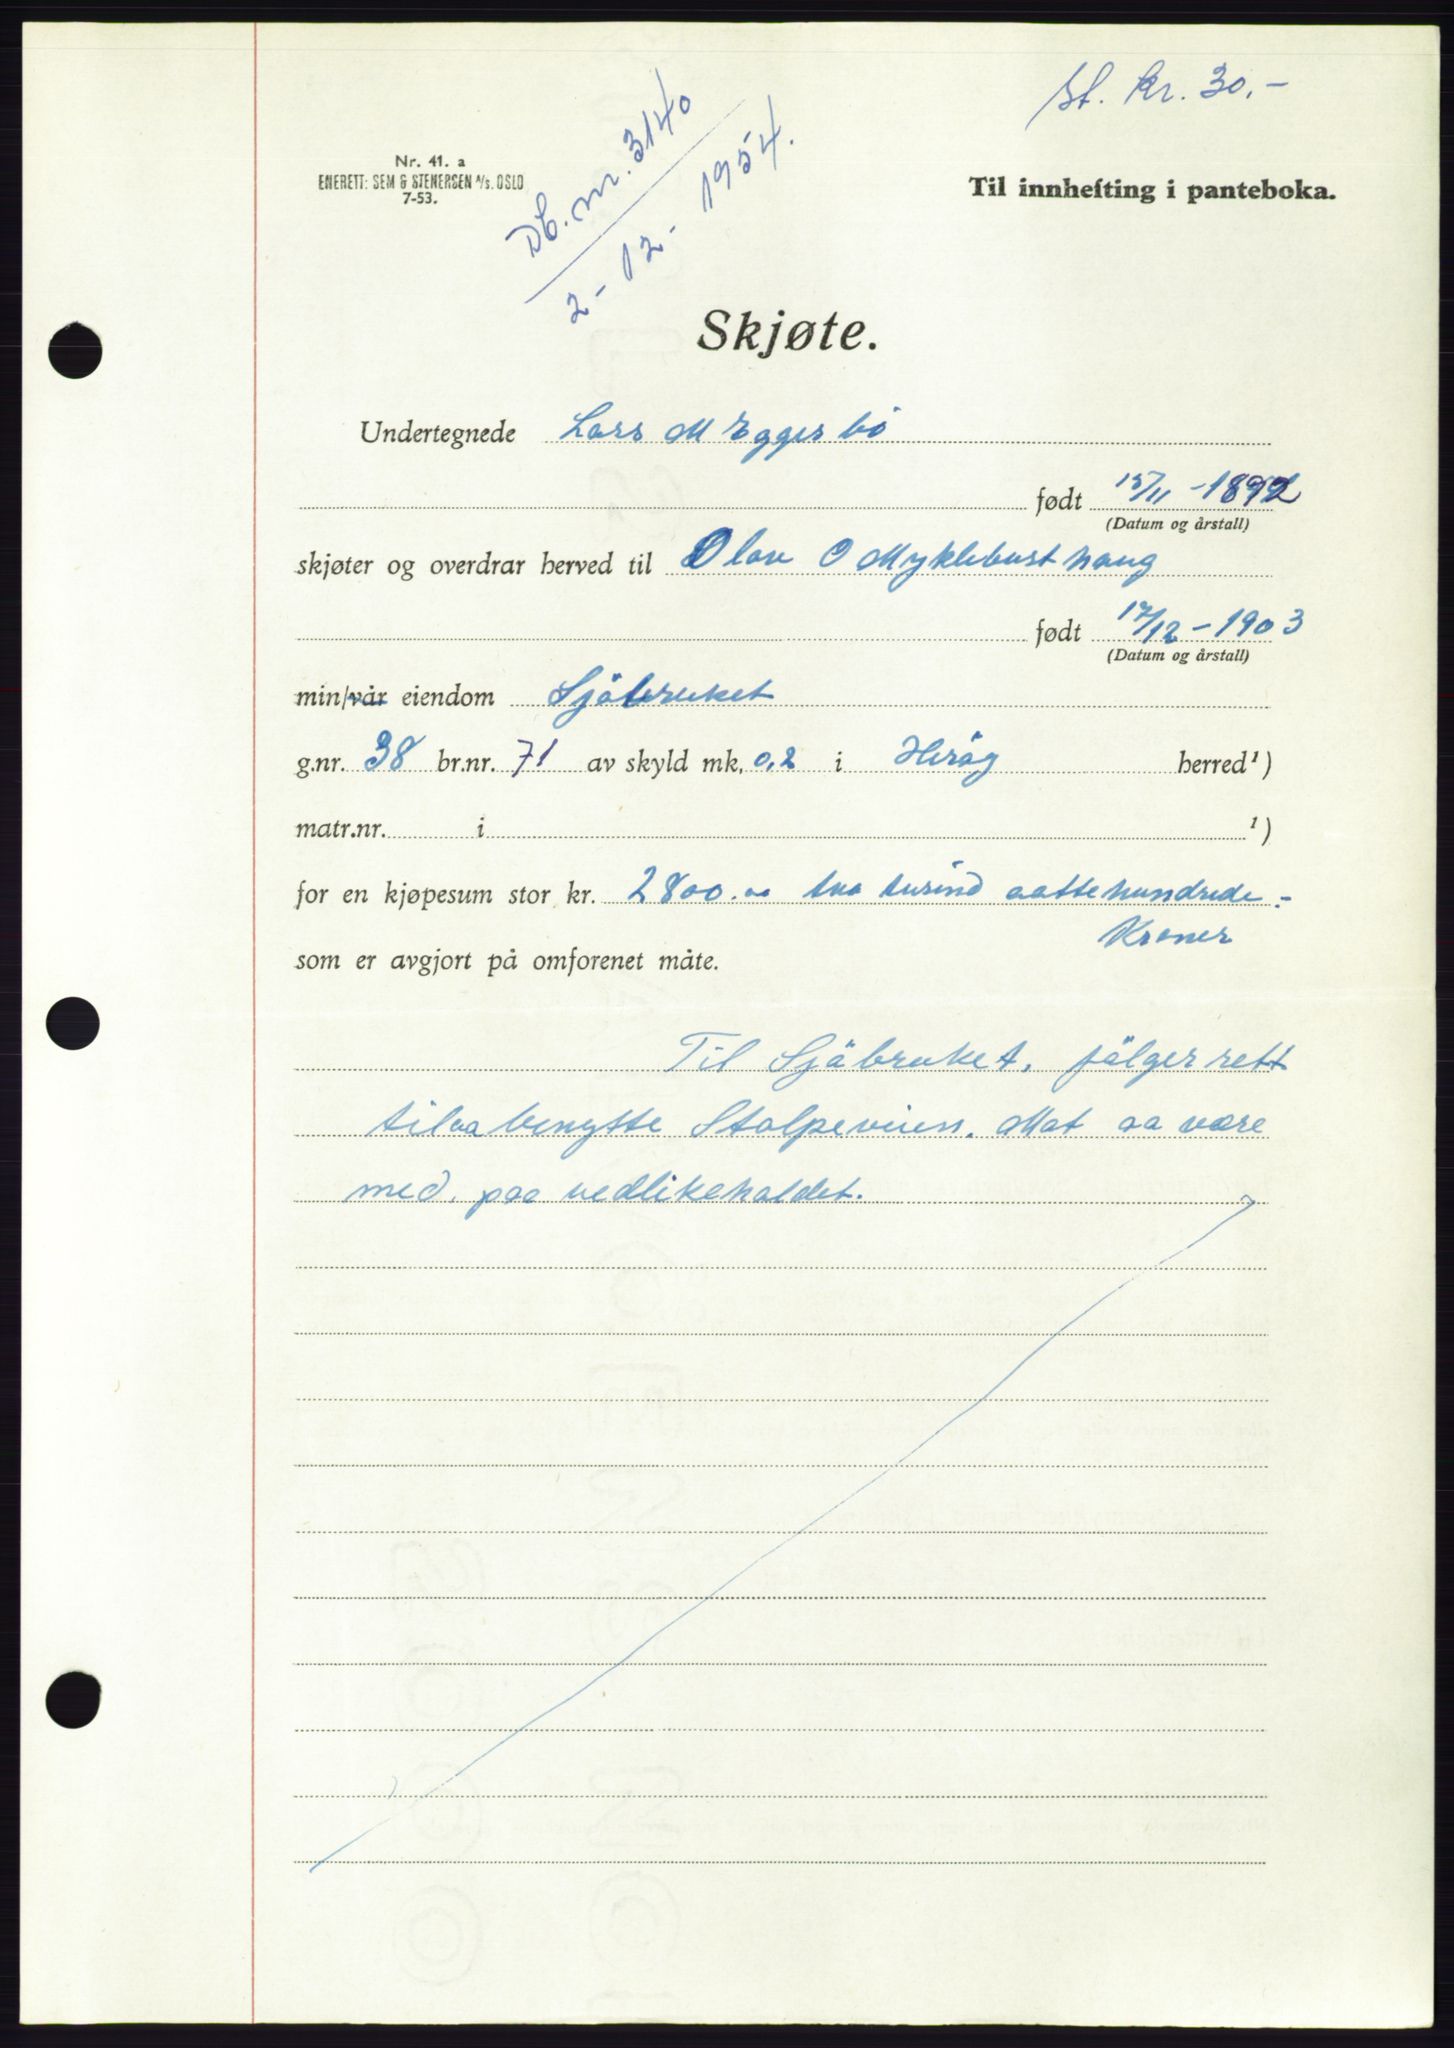 St. kr. 30.-
Db. nr. 3140
2-12-1954.
Nr. 41. a
ENERETT: SEM & STENERSEN A/S. OSLO
7-53.
Til innhefting i panteboka.
Skjøte.
Undertegnede Lars M Eggesbö
født 15/11 -1892
(Datum og årstall)
skjøter og overdrar herved til Olav O Myklebusthaug
født 17/12 -1903
(Datum og årstall)
min/vår eiendom Sjöbruket
g.nr. 38 br.nr. 71 av skyld mk. 0,2 i Heröy herred ¹)
matr.nr. i ¹)
for en kjøpesum stor kr. 2800.00 tva tusind aattehundrede.-
Kroner
som er avgjort på omforenet måte.
Til Sjöbruket, fölger rett
til aa benytte Stolpeveien. Mot aa være
med paa vedlikeholdet.